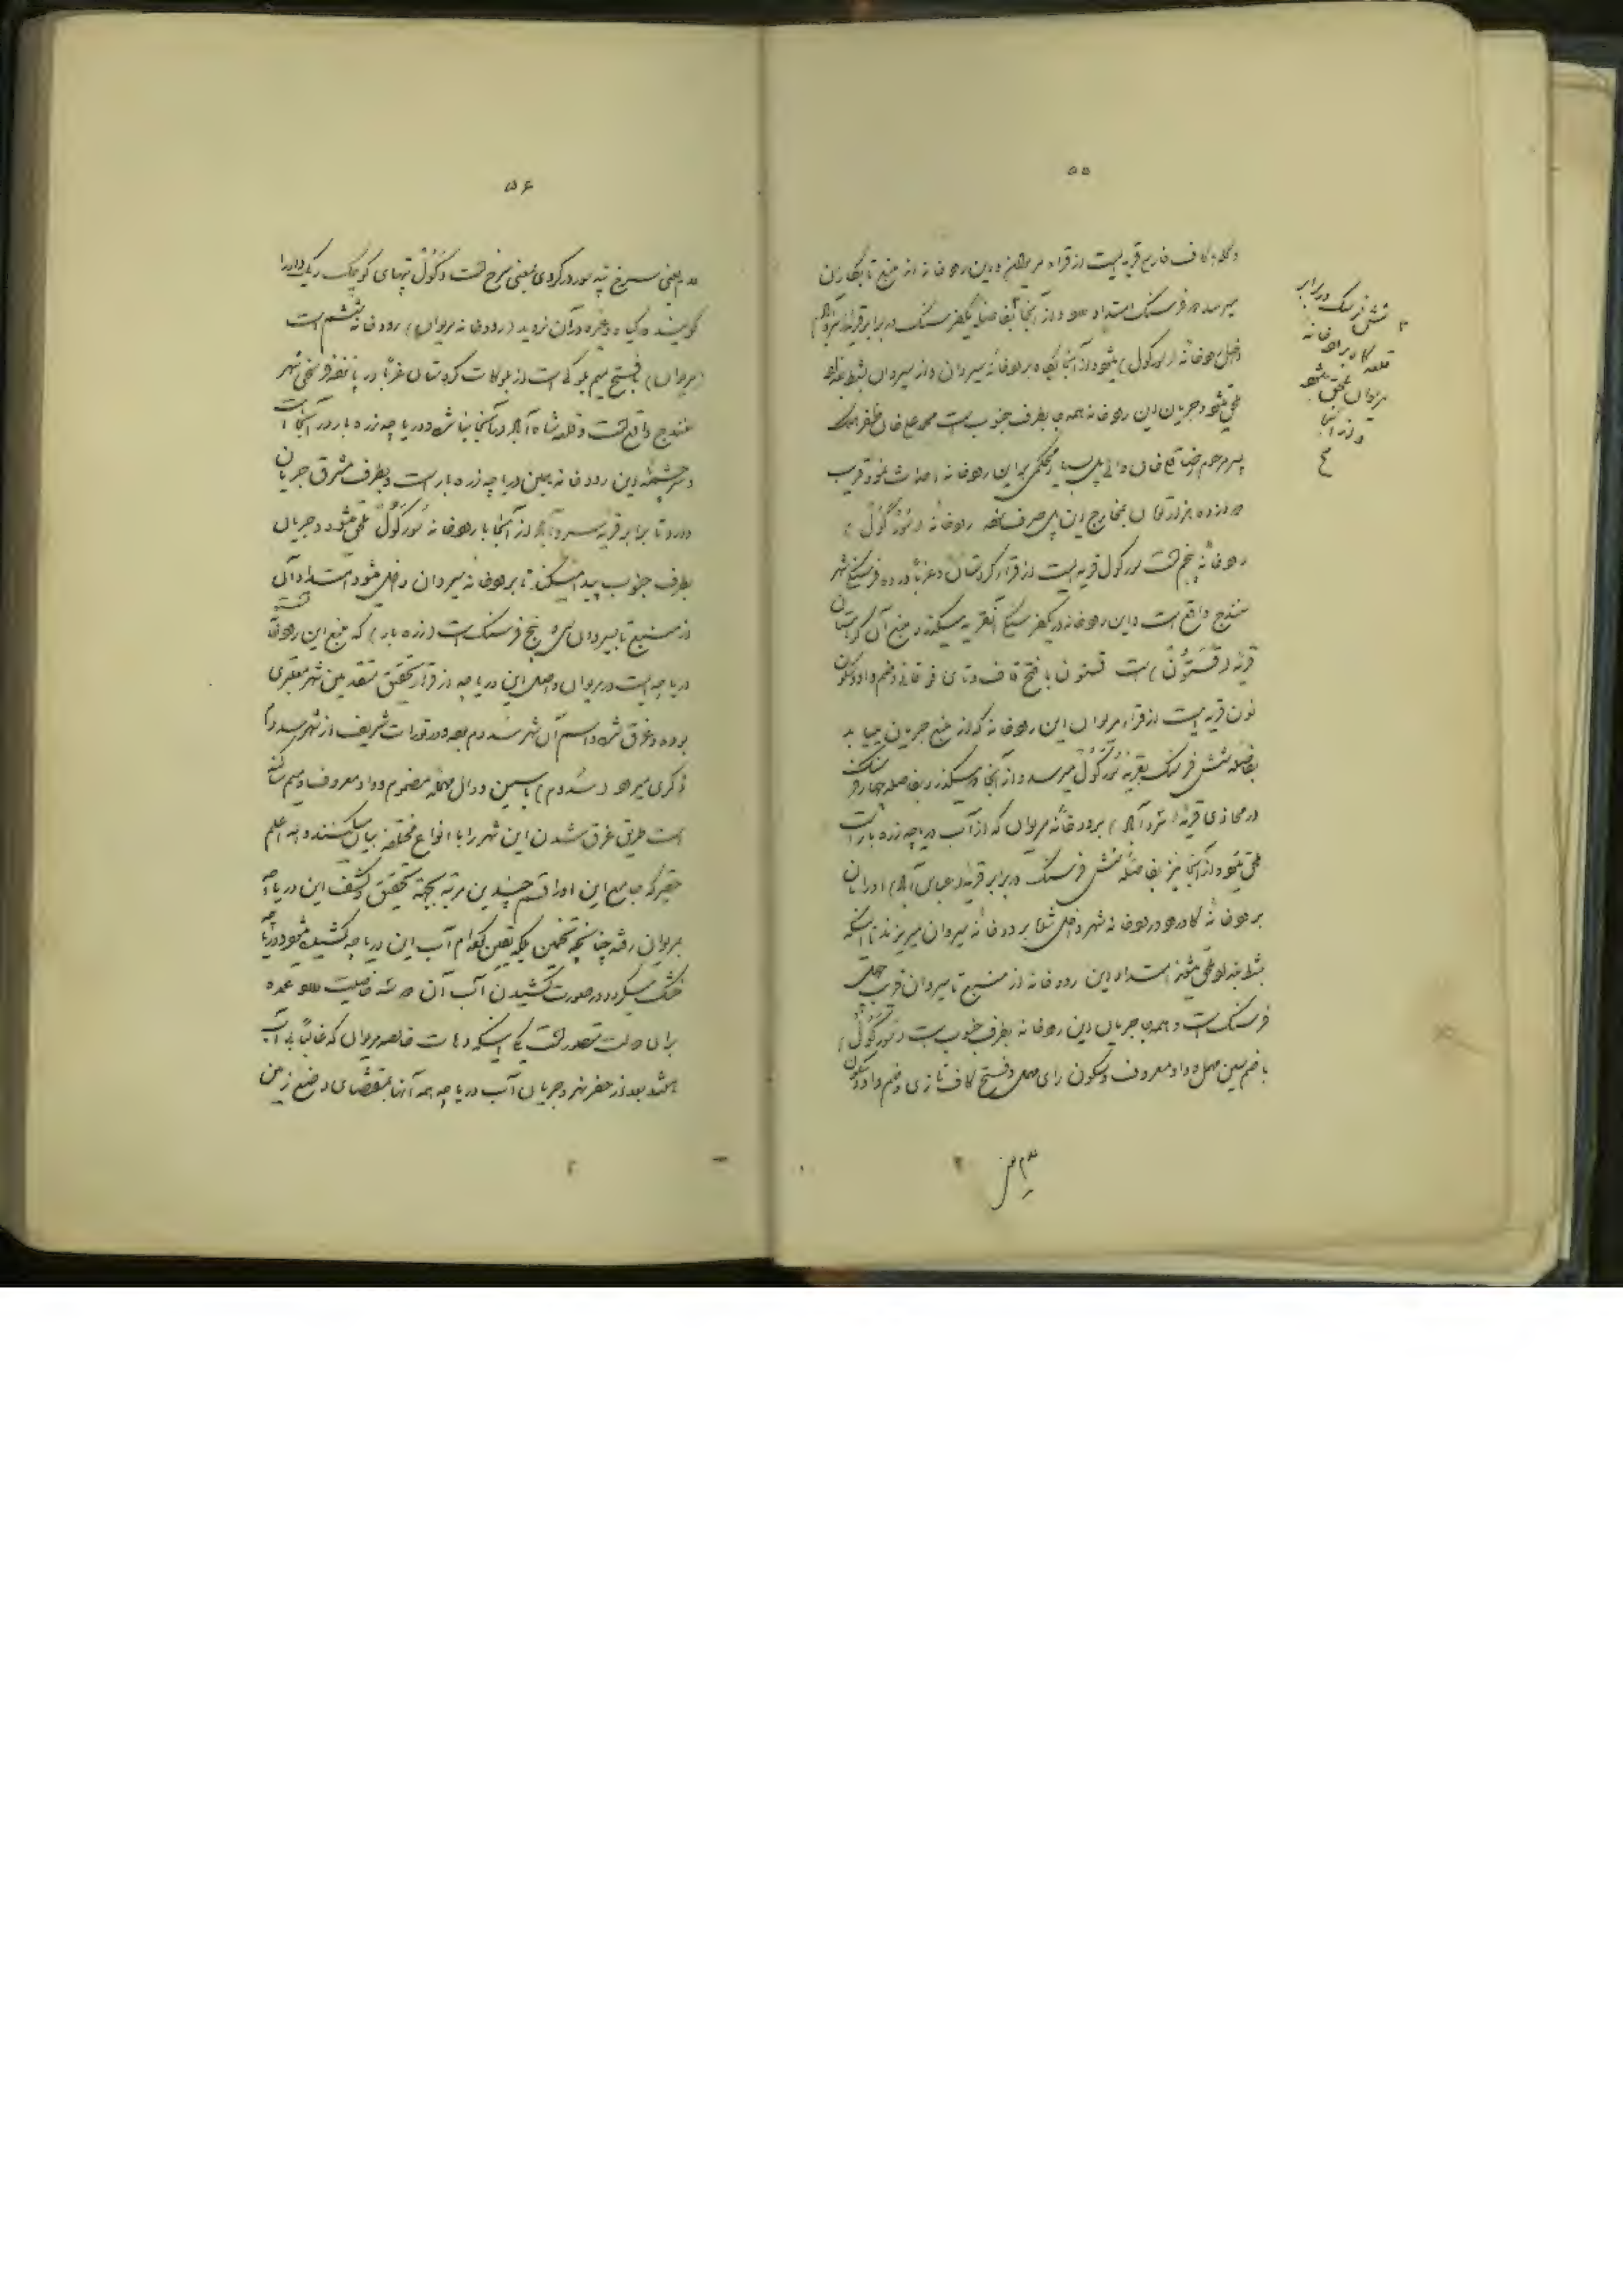 ۵۵
و کلاه کاف فارسی قریه ایست از قراء مریوان و این رودخانه از منبع تا بکاران
میرسد دو فرسنگ امتداد و از آنجا بفاصله یکفرسنگ در برابر قریه
داخل رودخانه (سورکول) میشود و از آنجا برودخانه سیروان و از سیروان بشط بغداد
ملحق میشود و جریان این رودخانه همه جا بطرف جنوب است محمد علی خان ظفرالملک
پسر مرحوم رضا قلی خان والی پل بسیار محکمی بر این رودخانه احداث نموده قریب
دوازده هزار تومان بمخارج این پل صرف نموده رودخانه (سورکول)
رودخانه پنجم است سورکول قریه ایست از قراء کردستان و غربا در ده فرسخی شهر
سنندج واقع است و این رودخانه در یکفرسخی آنقریه میگذرد منبع آن کوهستان
قریه (قستون) است قستون با فتح قاف و تای فوقانی و ضم واو و سکون
نون قریه ایست از قراء مریوان این رودخانه که از منبع جریان مییابد
بفاصله شش فرسنگ بقریه سورکول میرسد و از آنجا میگذرد بفاصله چهار فرسنگ
در محاذی قریه (سروآباد) برودخانه مریوان که از آب دریاچه زره بار است
ملحق میشود و از آنجا نیز بفاصله شش فرسنگ در برابر قریه (عباس آباد) اورامان
برودخانه گاورود و رودخانه شهر داخل شده برودخانه سیروان میریزند تا اینکه
بشط بغداد ملحق میشوند امتداد این رودخانه از منبع تا سیروان قریب چهل
فرسنگ است و همه جا جریان این رودخانه بطرف جنوب است (سورکول)
با ضم سین مهمله و واو معروف و سکون رای مهمله و فتح کاف تازی و ضم واو و سکون
شش فرسنگ در برابر
قلعه گاه برودخانه
مریوان ملحق میشود
و از آنجا
۵۶
لام یعنی سرخ تپه سور در کردی بمعنی سرخ است و کول تپهای کوچک را
گویند که گیاه و غیره در آن نروید (رودخانه مریوان) رودخانه ششم است
(مریوان) بفتح میم بلوکی است از بلوکات کردستان غربا در پانزده فرسخی شهر
سنندج واقع است و قلعه شاه آباد در آنجا بنا شده و دریاچه زره بار در آنجا است
سرچشمه این رودخانه همین دریاچه زره بار است و بطرف مشرق جریان
دارد تا برابر قریه سروآباد از آنجا با رودخانه سورکول ملحق میشود و جریان
بطرف جنوب پیدا میکند تا برودخانه سیروان داخل میشود امتداد آن
از منبع تا سیروان سی و پنج فرسنگ است (زره بار) که منبع این رودخانه است
دریاچه ایست در مریوان و اصل این دریاچه از قرار تحقیق متقدمین شهر معتبری
بوده و غرق شده و اسم آن شهر سدوم بوده و در تورات شریف از شهر سدوم
ذکری میرود (سدوم) با سین و دال مهمله مضموم و واو معروف و میم ساکنه
است طریق غرق شدن این شهر را با انواع مختلفه بیان میکنند والله اعلم
حقیر که جامع این اوراقم چندین مرتبه بجهة تحقیق و کشف این دریاچه
بمریوان رفته چنانچه تخمین بلکه یقین کرده ام آب این دریاچه کشیده میشود و دریاچه
خشک میگردد در صورت کشیدن آب آن دو سه خاصیت عمده
برای دولت متصور است یکی اینکه دهات خالصه مریوان که غالبا بی آب
باشند بعد از حفر نهر و جریان آب دریاچه همه آنها بمقتضای وضع زمین